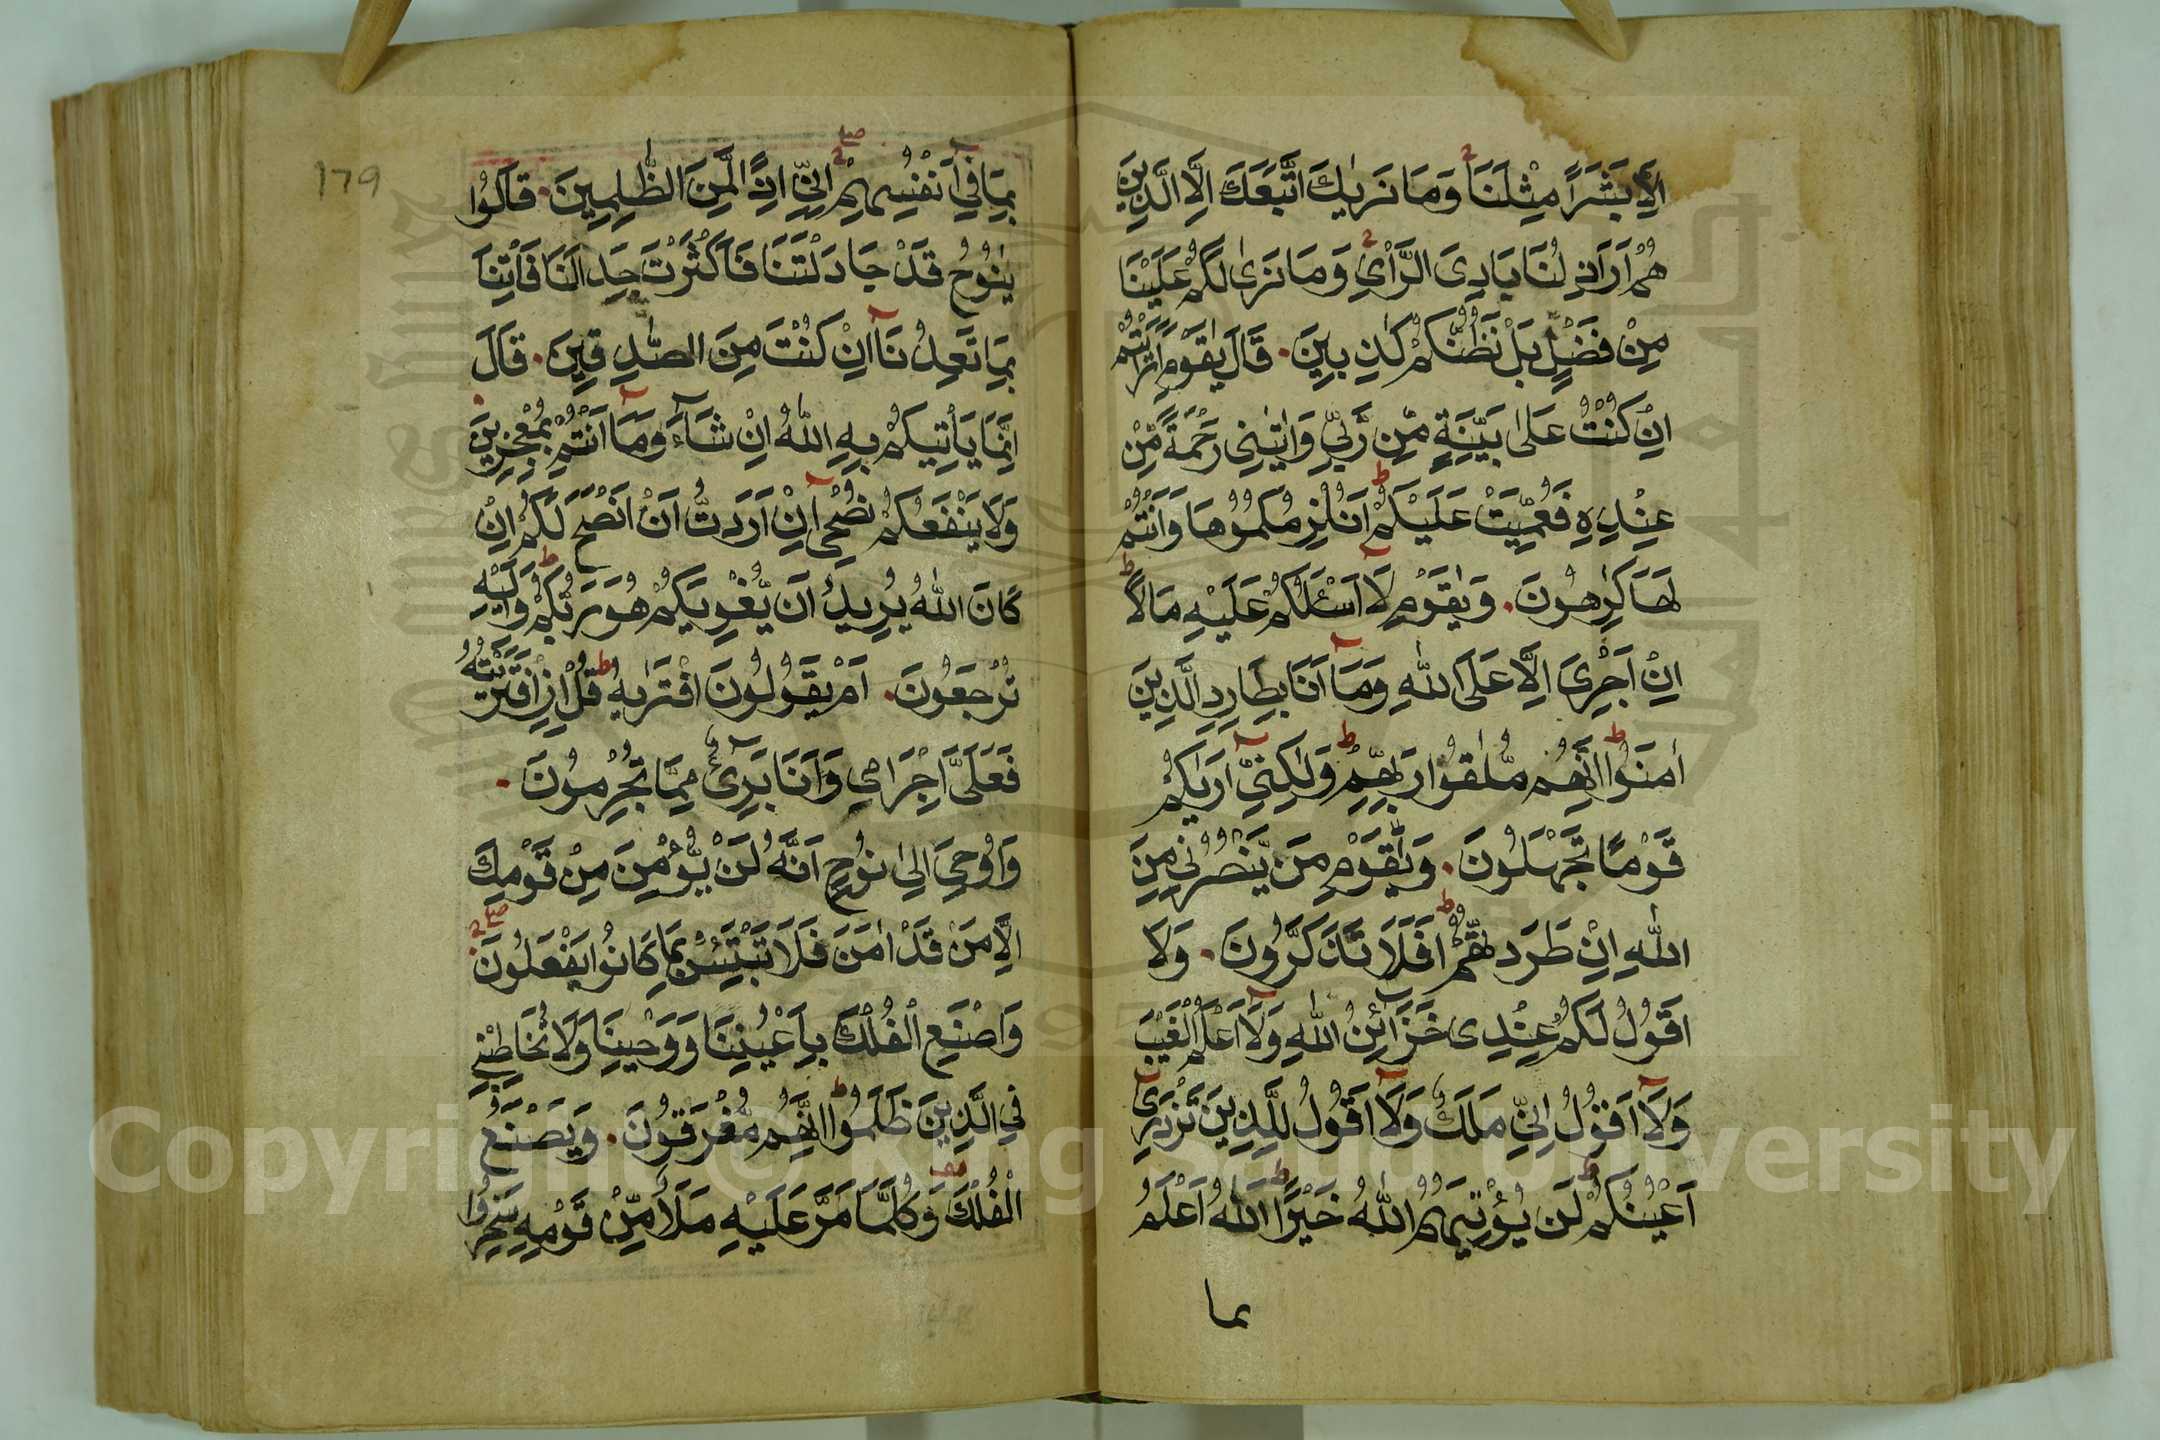 اِلَّا بَشَرًا مِثْلَنَا وَمَا نَرٰيكَ اتَّبَعَكَ اِلَّا الَّذِينَ
هُمْ اَرَاذِلُنَا بَادِىَ الرَّأْيِ وَمَا نَرٰى لَكُمْ عَلَيْنَا
مِنْ فَضْلٍ بَلْ نَظُنُّكُمْ كٰذِبِينَ قَالَ يٰقَوْمِ اَرَاَيْتُمْ
اِنْ كُنْتُ عَلٰى بَيِّنَةٍ مِّن رَّبِّي وَاٰتٰينِى رَحْمَةً مِّنْ
عِنْدِهٖ فَعُمِّيَتْ عَلَيْكُمْ اَنُلْزِمُكُمُوْهَا وَاَنْتُمْ
لَهَا كٰرِهُونَ وَيٰقَوْمِ لَا اَسْـَٔلُكُمْ عَلَيْهِ مَالًا
اِنْ اَجْرِىَ اِلَّا عَلَى اللّٰهِ وَمَا اَنَا بِطَارِدِ الَّذِينَ
اٰمَنُوْا اِنَّهُم مُّلٰقُوا رَبِّهِمْ وَلٰكِنِّي اَرٰيكُمْ
قَوْمًا تَجْهَلُونَ وَيٰقَوْمِ مَن يَّنْصُرُنِي مِنَ
اللّٰهِ اِنْ طَرَدتُّهُمْ اَفَلَا تَذَكَّرُونَ وَلَا
اَقُولُ لَكُمْ عِنْدِى خَزَائِنُ اللّٰهِ وَلَا اَعْلَمُ الْغَيْبَ
وَلَا اَقُوْلُ اِنِّي مَلَكٌ وَلَا اَقُولُ لِلَّذِينَ تَزْدَرِى
اَعْيُنُكُمْ لَن يُؤْتِيَهُمُ اللّٰهُ خَيْرًا اَللّٰهُ اَعْلَمُ
بما
١٦٩
بِمَا فِي اَنْفُسِهِمْ اِنِّي اِذًا لَّمِنَ الظّٰلِمِينَ قَالُوْا
يٰنُوْحُ قَدْ جَادَلْتَنَا فَاَكْثَرْتَ جِدَالَنَا فَاْتِنَا
بِمَا تَعِدُنَا اِنْ كُنْتَ مِنَ الصّٰدِقِينَ قَالَ
اِنَّمَا يَأْتِيكُمْ بِهِ اللّٰهُ اِنْ شَاءَ وَمَا اَنْتُمْ بِمُعْجِزِينَ
وَلَا يَنْفَعُكُمْ نُصْحِى اِنْ اَرَدتُّ اَنْ اَنْصَحَ لَكُمْ اِنْ
كَانَ اللّٰهُ يُرِيدُ اَن يُّغْوِيَكُمْ هُوَ رَبُّكُمْ وَاِلَيْهِ
تُرْجَعُونَ اَمْ يَقُولُونَ افْتَرٰيهُ قُلْ اِنِ افْتَرَيْتُهُ
فَعَلَىَّ اِجْرَامِي وَاَنَا بَرِيْءٌ مِمَّا تُجْرِمُونَ
وَاُوحِيَ اِلٰى نُوْحٍ اَنَّهُ لَنْ يُّؤْمِنَ مِنْ قَوْمِكَ
اِلَّا مَنْ قَدْ اٰمَنَ فَلَا تَبْتَئِسْ بِمَا كَانُوا يَفْعَلُونَ
وَاصْنَعِ الْفُلْكَ بِاَعْيُنِنَا وَوَحْيِنَا وَلَا تُخَاطِبْنِي
فِي الَّذِينَ ظَلَمُوا اِنَّهُم مُّغْرَقُونَ وَيَصْنَعُ
الْفُلْكَ وَكُلَّمَا مَرَّ عَلَيْهِ مَلَاٌ مِّنْ قَوْمِهِ سَخِرُوا
Copyright © King Saud University